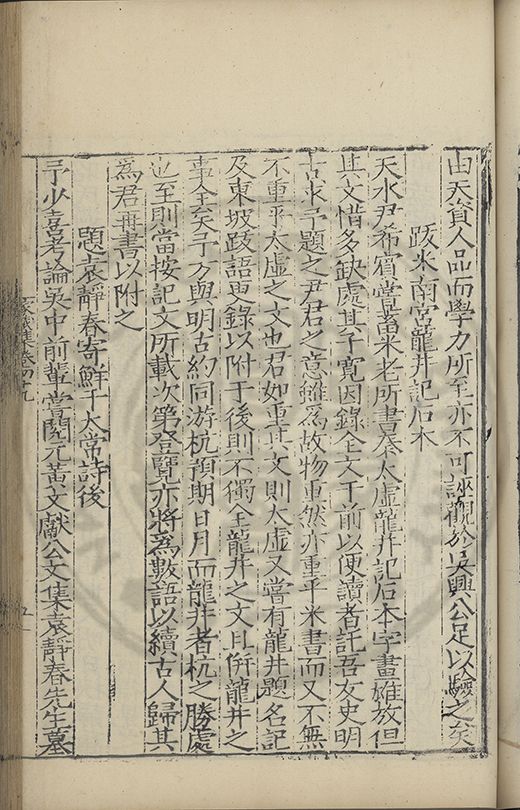 由天資人品而學力所至亦不可誣觀於吳興公足以驗之矣
跋米南宮龍井記石本
天水尹希賓嘗蓄米老所書秦太虛龍井記石本字畫雄放但
其文惜多缺處其子寬因錄全文于前以便讀者託吾友史明
古求予題之尹君之意雖為故物重然亦重乎米書而又不無
不重乎太虛之文也君如重其文則太虛又嘗有龍井題名記
及東坡跋語更錄以附于後則不獨全龍井之文且併龍井之
事全矣予方與明古約同游杭預期日月而龍井者杭之勝處
也至則當按記文所載次第登覽亦將為數語以續古人歸其
為君冊書以附之
題袁靜春寄鮮于太常詩後
予少喜考論吳中前輩嘗閱元黃文獻公文集袁靜春先生墓
家藏集卷四十九
五